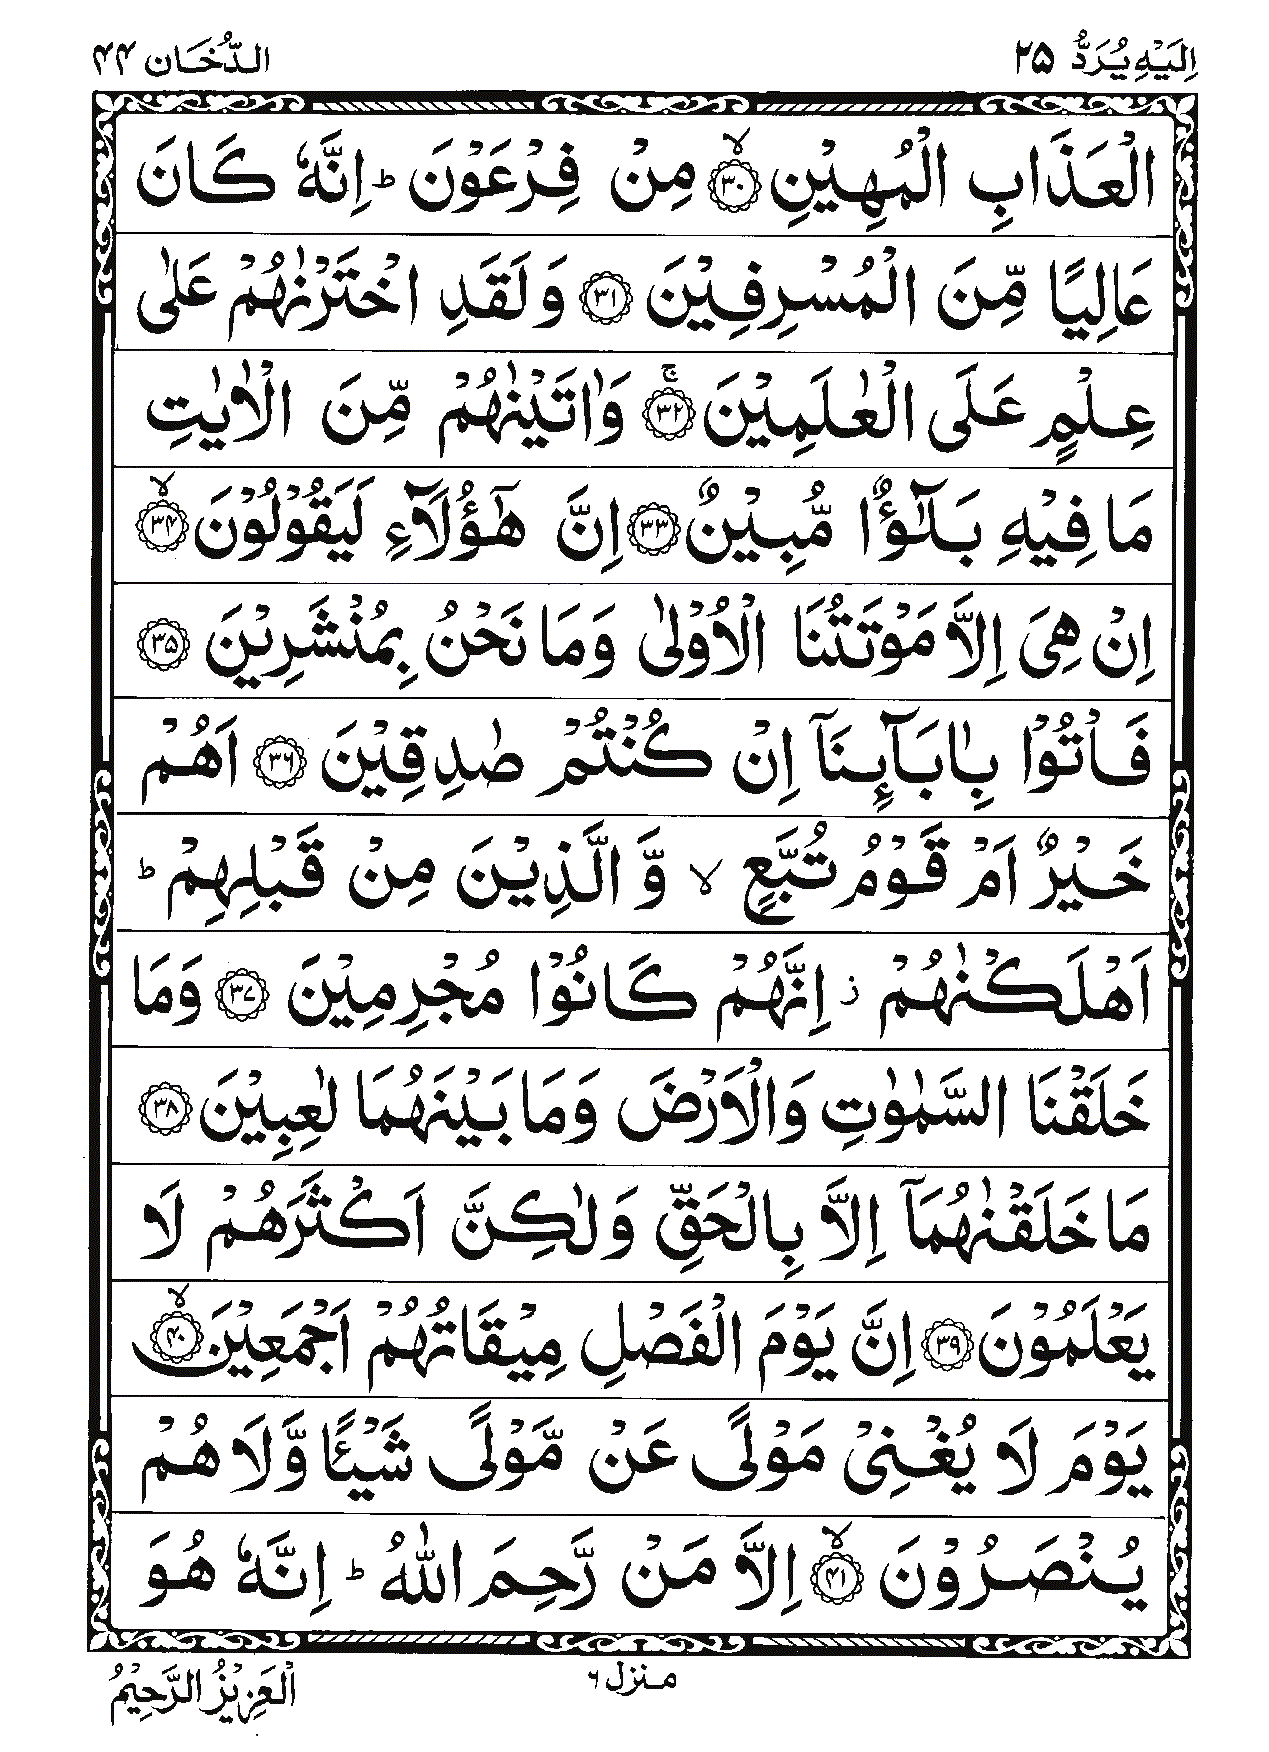 اِلَیْهِ یُرَدُّ ۲۵
الدُّخَان ۴۴
الْعَذَابِ الْمُهِیْنِ ۙ﴿۳۰﴾ مِنْ فِرْعَوْنَ ؕ اِنَّهٗ كَانَ
عَالِیًا مِّنَ الْمُسْرِفِیْنَ ﴿۳۱﴾ وَ لَقَدِ اخْتَرْنٰهُمْ عَلٰی
عِلْمٍ عَلَی الْعٰلَمِیْنَ ۚ﴿۳۲﴾ وَاٰتَیْنٰهُمْ مِّنَ الْاٰیٰتِ
مَا فِیْهِ بَلٰٓؤٌا مُّبِیْنٌ ﴿۳۳﴾ اِنَّ هٰۤؤُلَآءِ لَیَقُوْلُوْنَ ۙ﴿۳۴﴾
اِنْ هِیَ اِلَّا مَوْتَتُنَا الْاُوْلٰی وَمَا نَحْنُ بِمُنْشَرِیْنَ ﴿۳۵﴾
فَاْتُوْا بِاٰبَآىِٕنَاۤ اِنْ كُنْتُمْ صٰدِقِیْنَ ﴿۳۶﴾ اَهُمْ
خَیْرٌ اَمْ قَوْمُ تُبَّعٍ ۙ وَّ الَّذِیْنَ مِنْ قَبْلِهِمْ ؕ
اَهْلَكْنٰهُمْ ؗ اِنَّهُمْ كَانُوْا مُجْرِمِیْنَ ﴿۳۷﴾ وَمَا
خَلَقْنَا السَّمٰوٰتِ وَالْاَرْضَ وَمَا بَیْنَهُمَا لٰعِبِیْنَ ﴿۳۸﴾
مَا خَلَقْنٰهُمَاۤ اِلَّا بِالْحَقِّ وَلٰكِنَّ اَكْثَرَهُمْ لَا
یَعْلَمُوْنَ ﴿۳۹﴾ اِنَّ یَوْمَ الْفَصْلِ مِیْقَاتُهُمْ اَجْمَعِیْنَ ۙ﴿۴۰﴾
یَوْمَ لَا یُغْنِیْ مَوْلًی عَنْ مَّوْلًی شَیْـًٔا وَّلَا هُمْ
یُنْصَرُوْنَ ۙ﴿۴۱﴾ اِلَّا مَنْ رَّحِمَ اللّٰهُ ؕ اِنَّهٗ هُوَ
منزل ۶
الْعَزِیْزُ الرَّحِیْمُ